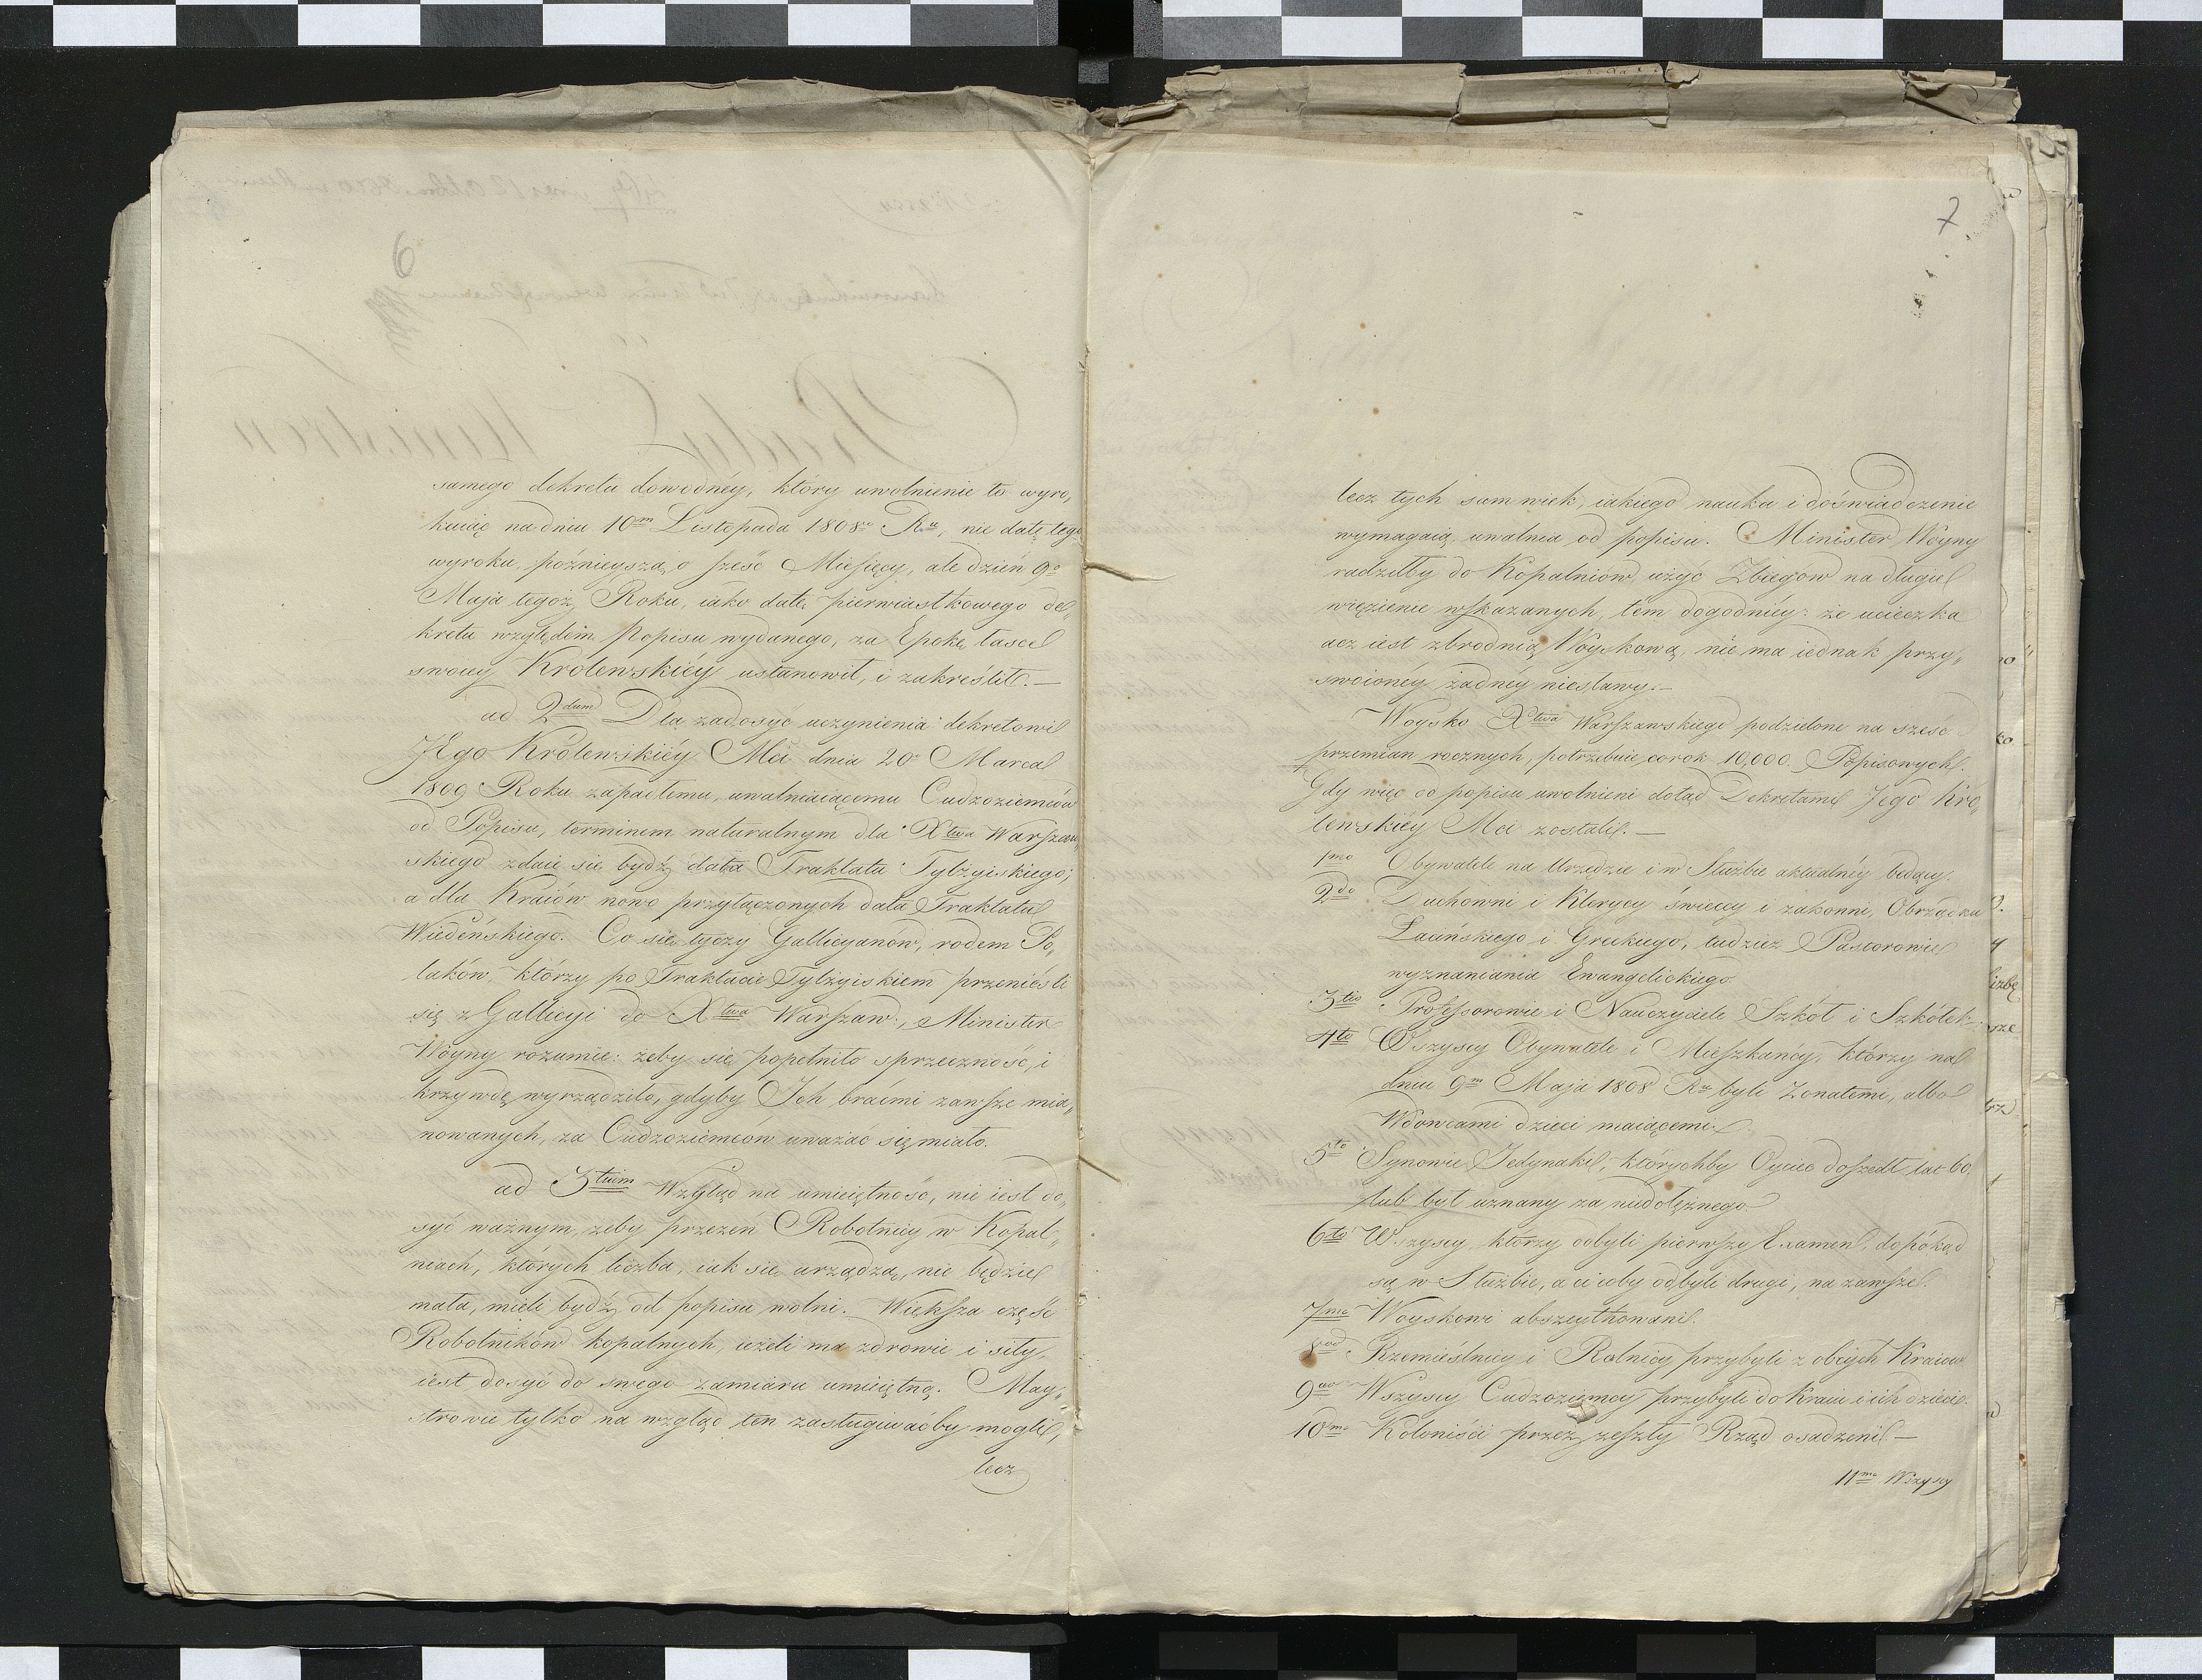 6
samego dekretu dowodnéy, który uwolnienie to wyro„
kuiąc na dniu 10m Listopada 1808o Ru, nie datę tego
wyroku, poźnieyszą o sześć Miesięcy, ale dzień 9o
Maja tegoż Roku, iako datę pierwiastkowego de„
kretu względem Popisu wydanego, za Epokę łasce
swoiey Królewskiéy ustanowił, i zakreślił.—
ad 2dum Dla zadosyć uczynienia dekretowi
JEgo Królewskiéy Mci dnia 20o Marca
1809 Roku zapadłemu, uwalniaiącemu Cudzoziemców
od Popisu, terminem naturalnym dla Xtwa Warszaw„
skiego zdaie się bydź data Traktatu Tylżyiskiego;
a dla Kraiów nowo przyłączonych data Traktatu
Wiedeńskiego. Co się tyczy Gallicyanów, rodem Po„
laków, którzy po Traktacie Tylżyiskiem przenieśli
się z Gallicyi do Xtwa Warszaw:, Minister
Woyny rozumie: żeby się popełniło sprzeczność, i
krzywdę wyrządziło, gdyby Ich braćmi zawsze mia„
nowanych, za Cudzoziemców uważać się miało.
ad 3tium Wzgląd na umieiętność, nie iest do„
syć ważnym, żeby przezeń Robotnicy w Kopal„
niach, których liczba, iak się urządzą, nie będzie
mała, mieli bydź od popisu wolni. Większa część
Robotników kopalnych, ieżeli ma zdrowie i siły,
iest dosyć do swego zamiaru umieiętną. May„
strowie tylko na wzgląd ten zasługiwać by mogli,
lecz
7
lecz tych sam wiek, iakiego nauka i doświadczenie
wymagaią, uwalnia od popisu. Minister Woyny
radziłby do Kopalniów użyć Zbiegów na długie
więzienie wskazanych, tém dogodniéy: że ucieczka
acz iest zbrodnią Woyskową, nie ma iednak przy„
swoionéy żadnéy niesławy.—
Woysko Xtwa Warszawskiego podzielone na sześć
przemian rocznych, potrzebuie co rok 10,000. Popisowych.
Gdy więc od popisu uwolnieni dotąd Dekretami Jego Kró„
lewskiéy Mci zostali.—
1mo Obywatele na Urzędzie i w Służbie aktualnéy będący.
2do Duchowni i Klerycy świeccy i zakonni, Obrządku
Łacińskiego i Greckiego, tudzież Pastorowie
wyznaniania Ewangelickiego.
3tio Professorowie i Nauczyciele Szkół i Szkółek.
4to Wszyscy Obywatele i Mieszkańcy, którzy na
dniu 9m Maja 1808 Ru byli Żonatemi, albo
Wdowcami dzieci maiącemi.
5to Synowie Jedynaki, którychby Oyciec doszedł lat 60,
lub był uznany za niedołężnego.
6to Wszyscy, którzy odbyli pierwszy Examen, dopókąd
są w Służbie, a ci coby odbyli drugi, na zawsze.
7mo Woyskowi abszeytowani.
8vo Rzemieślnicy i Rolnicy przybyli z obcych Kraiów
9no Wszyscy Cudzoziemcy przybyli do Kraiu i ich dzieci.
10mo Koloniści przez zeszły Rząd osadzeni.—
11mo Wszyscy